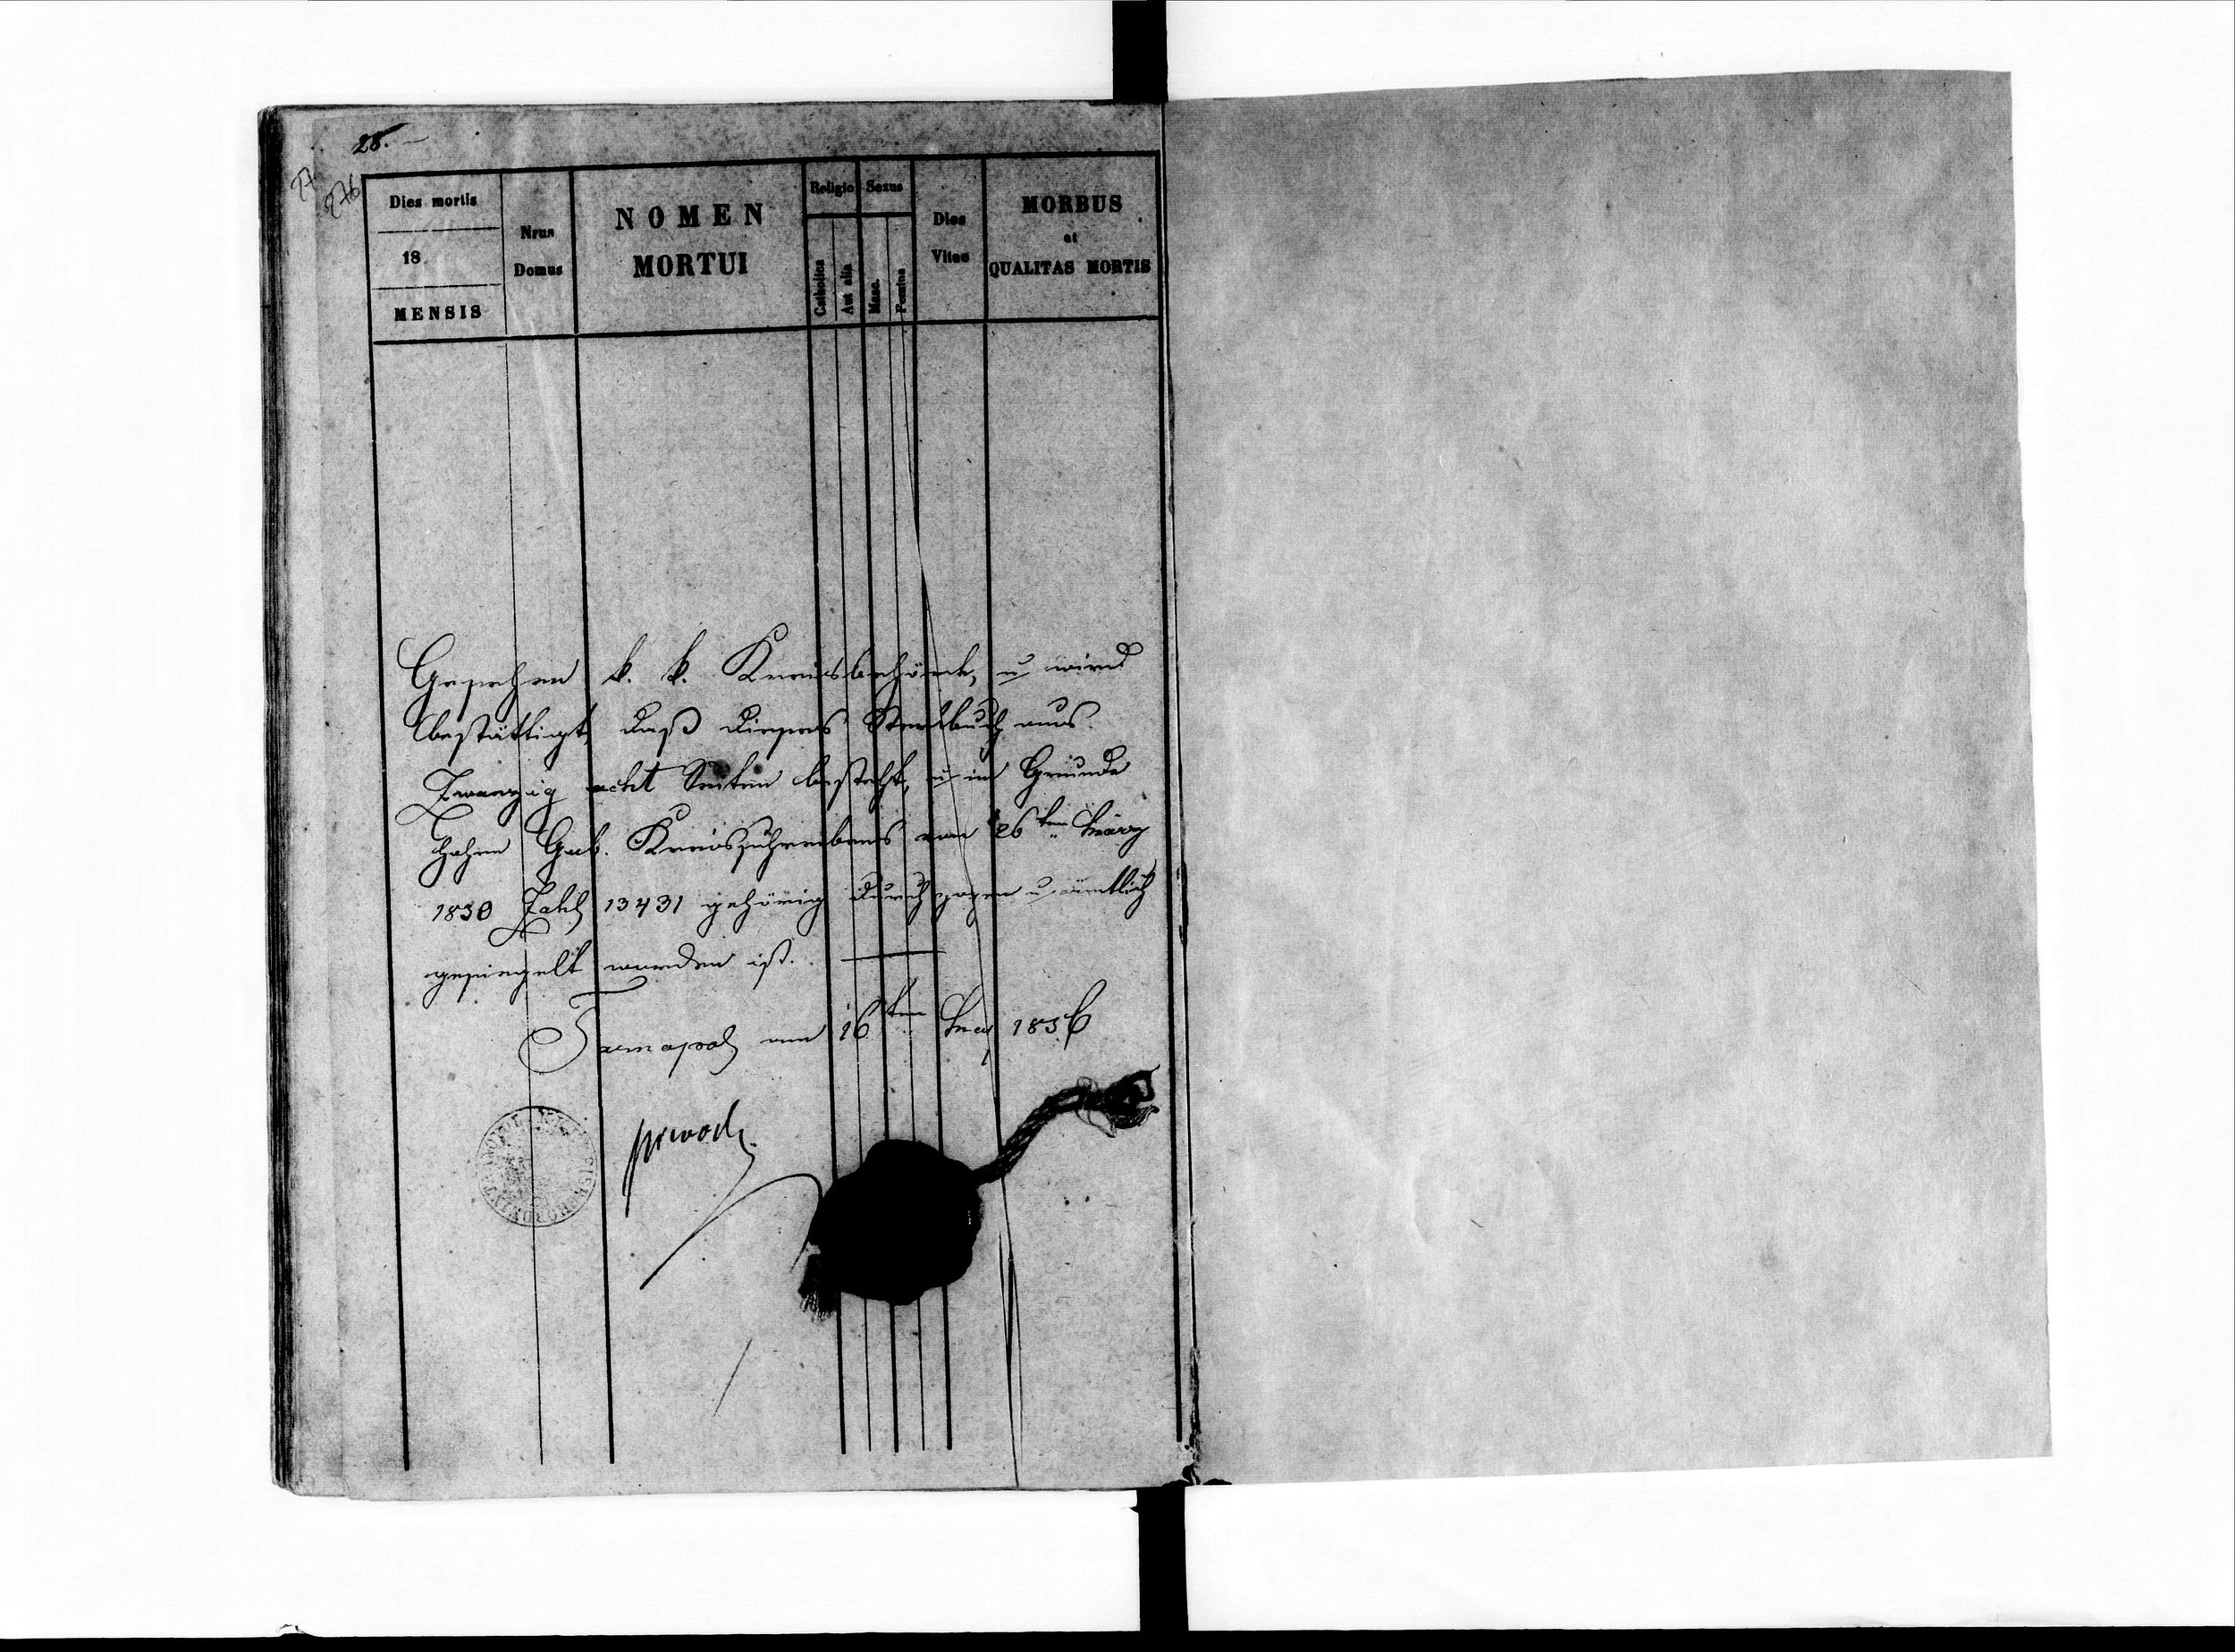 28.
276
Dies mortis
18
MENSIS
Nrus
Domus
NOMEN
MORTUI
Religio
Catholica
Aut alia
Sexus
Masc.
Femina
Dies
Vitae
MORBUS
et
QUALITAS MORTIS
Gesehen k. k. Kreisbehörde, u wird
bestättigt, daß dieses Sterbbuch aus
Zwanzig acht Seiten besteht, u im Grunde
hohen Gub. Kreisschreibens vom 26ten März
1830 Zahl 13431 gehörig durchzogen u ämtlich
gesiegelt worden ist.
Tarnopol am 16ten Mai 1836